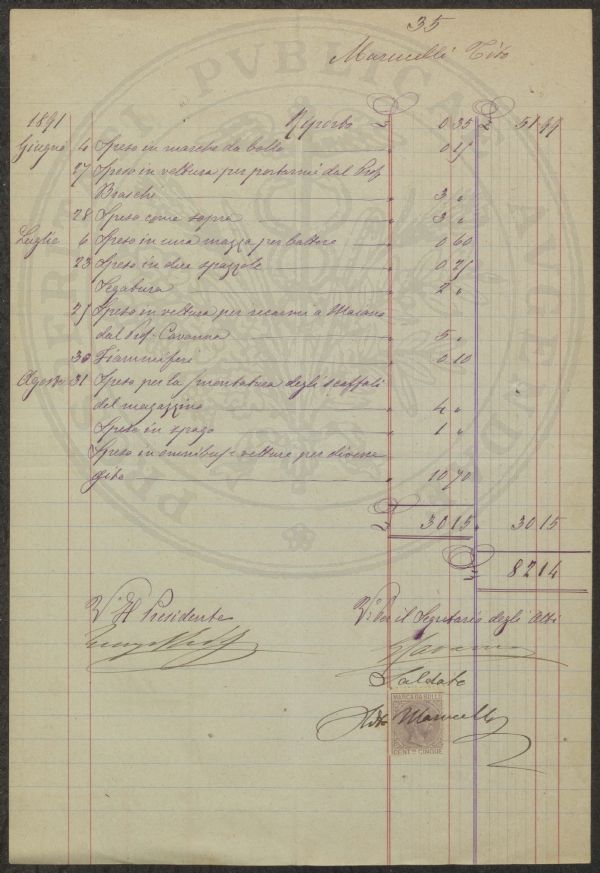 35
Marucelli Tito
1891 Riporto £ 0.35 £ 51.99
Giugno 4 Speso in marche da bollo " 0.15
27 Speso in vettura per portarmi dal Prof.
Biaschi " 3 "
28 Speso come sopra " 3 "
Luglio 6 Speso in una mazza per battere " 0.60
23 Speso in due spazzole " 0.25
Segatura " 2 "
25 Speso in vettura per recarmi a Maiano
dal Prof. Cavanna " 5 "
30 Fiammiferi " 0.10
Agosto 31 Speso per la smontatura degli scaffali
del magazzino " 4 "
Speso in spago " 1 "
Speso in omnibus e vetture per diverse
gite " 10.70
£ 30.15 " 30.15
£ 82.14
V° Il Presidente
V° Per il Segretario degli Atti
G Cavanna
Saldato
Tito Marucelli
MARCA DA BOLLO
CENT.MI CINQUE